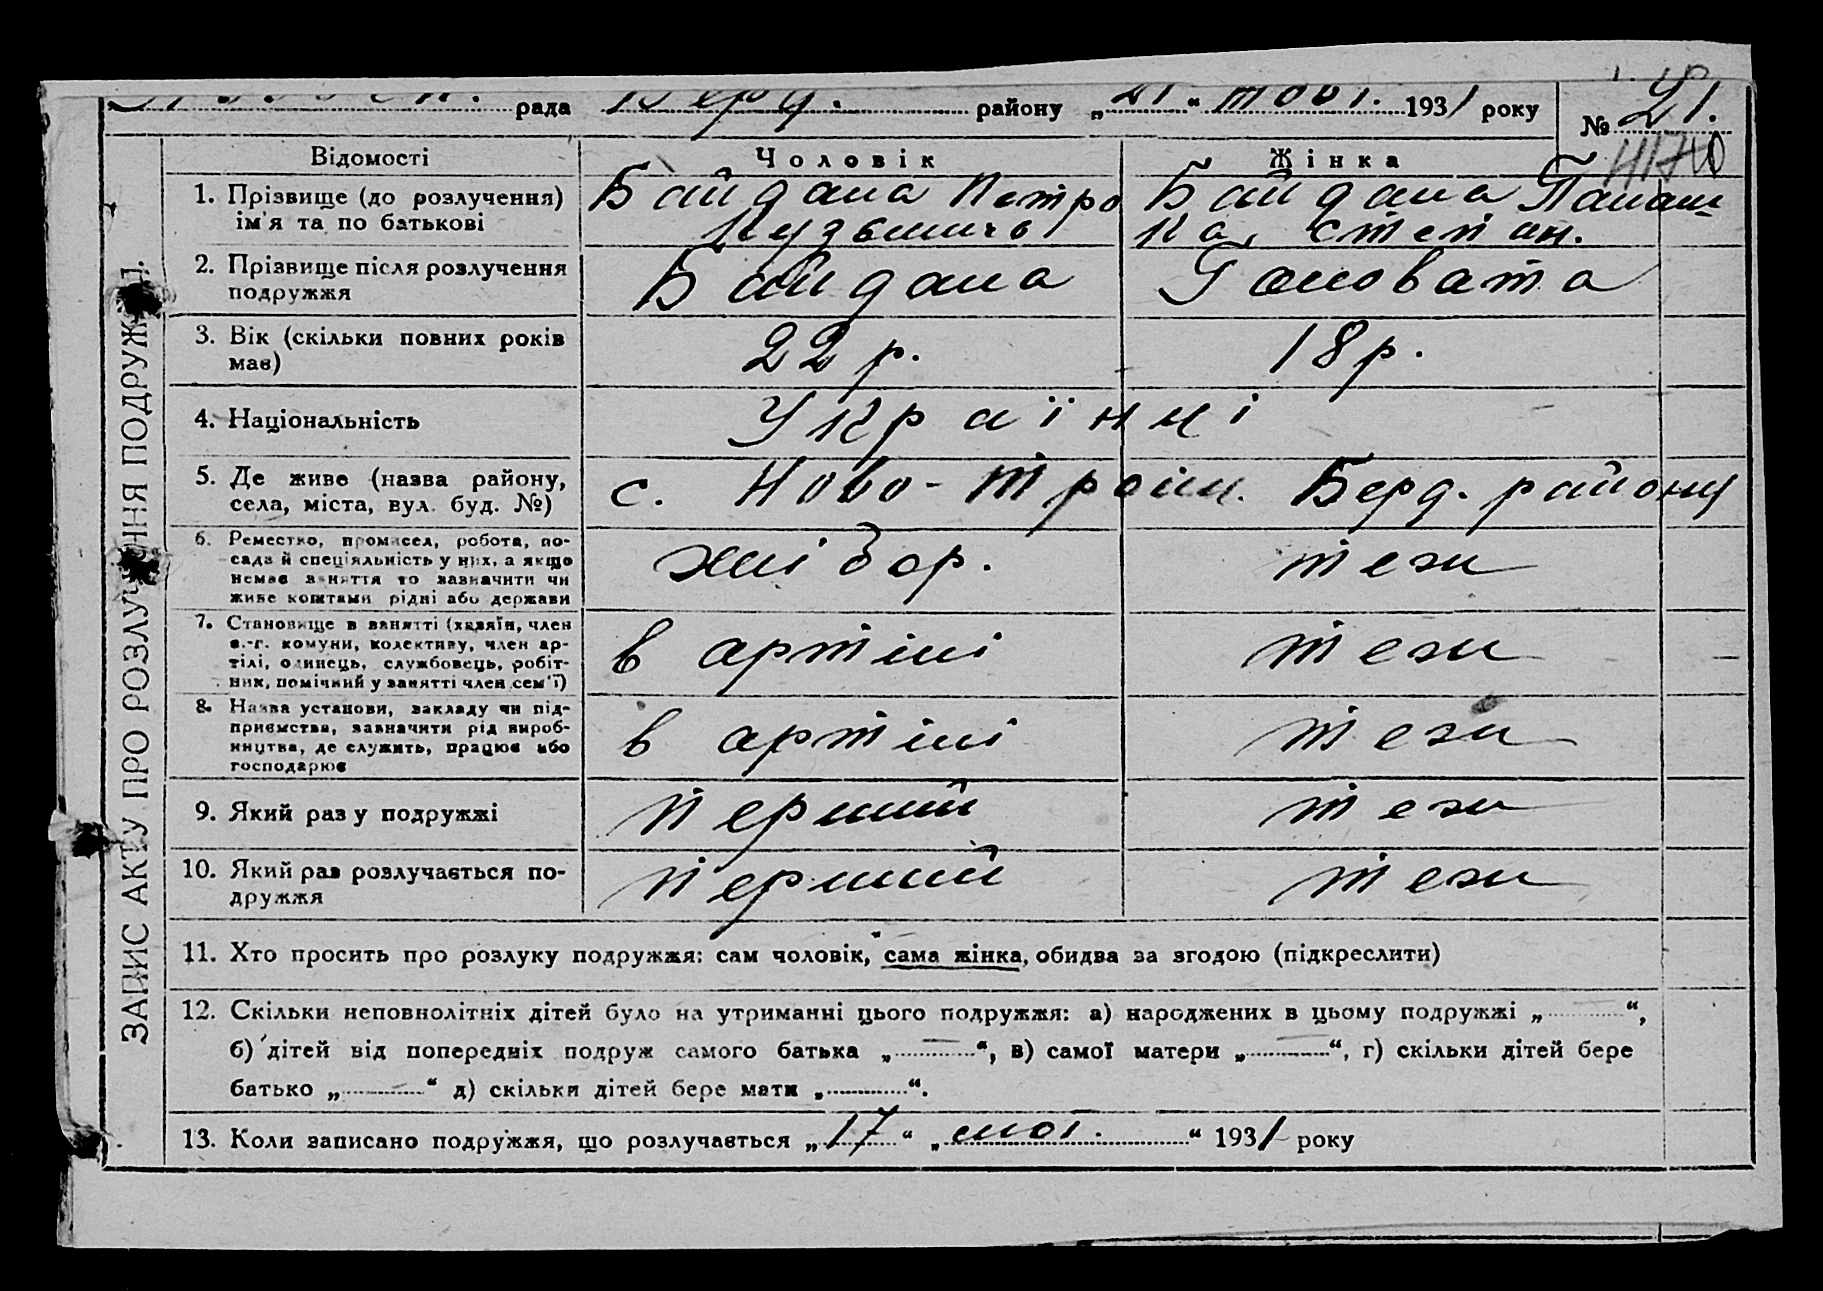 рада Берд. району „21“ жовт. 1931 року № 21.
4170
Відомості Чоловік Жінка
1. Прізвище (до розлучення) ім'я та по батькові
Байдала Петро Кузьмичь
Байдала Палаш-
ка, Степан.
2. Прізвище після розлучення подружжя
Байдала
Головата
3. Вік (скільки повних років має)
22 р.
18 р.
4. Національність
Українці
5. Де живе (назва району, села, міста, вул. буд. №)
с. Ново-Троїц. Берд. району
6. Ремество, промисел, робота, по-
сада й спеціяльність у них, а якщо
немає заняття то зазначити чи
живе коштами рідні або держави
хлібор.
теж
7. Становище в занятті (хазяїн, член
с.-г. комуни, колективу, член ар-
тілі, одинець, службовець, робіт-
ник, помічний у занятті член сем'ї)
в артілі
теж
8. Назва установи, закладу чи під-
приємства, зазначити рід вироб-
ництва, де служить, працює або
господарює
в артілі
теж
9. Який раз у подружжі
перший
теж
10. Який раз розлучається по-
дружжя
перший
теж
11. Хто просить про розлуку подружжя: сам чоловік, сама жінка, обидва за згодою (підкреслити)
12. Скільки неповнолітніх дітей було на утриманні цього подружжя: а) народжених в цьому подружжі „—“,
б) дітей від попередніх подруж самого батька „—“, в) самої матери „—“, г) скільки дітей бере
батько „—“ д) скільки дітей бере мати „.....“.
13. Коли записано подружжя, що розлучається „17“ „лют.“ 1931 року
ЗАПИС АКТУ ПРО РОЗЛУЧЕННЯ ПОДРУЖЖЯ.